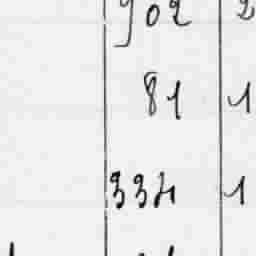 902 2
81 1
334 1